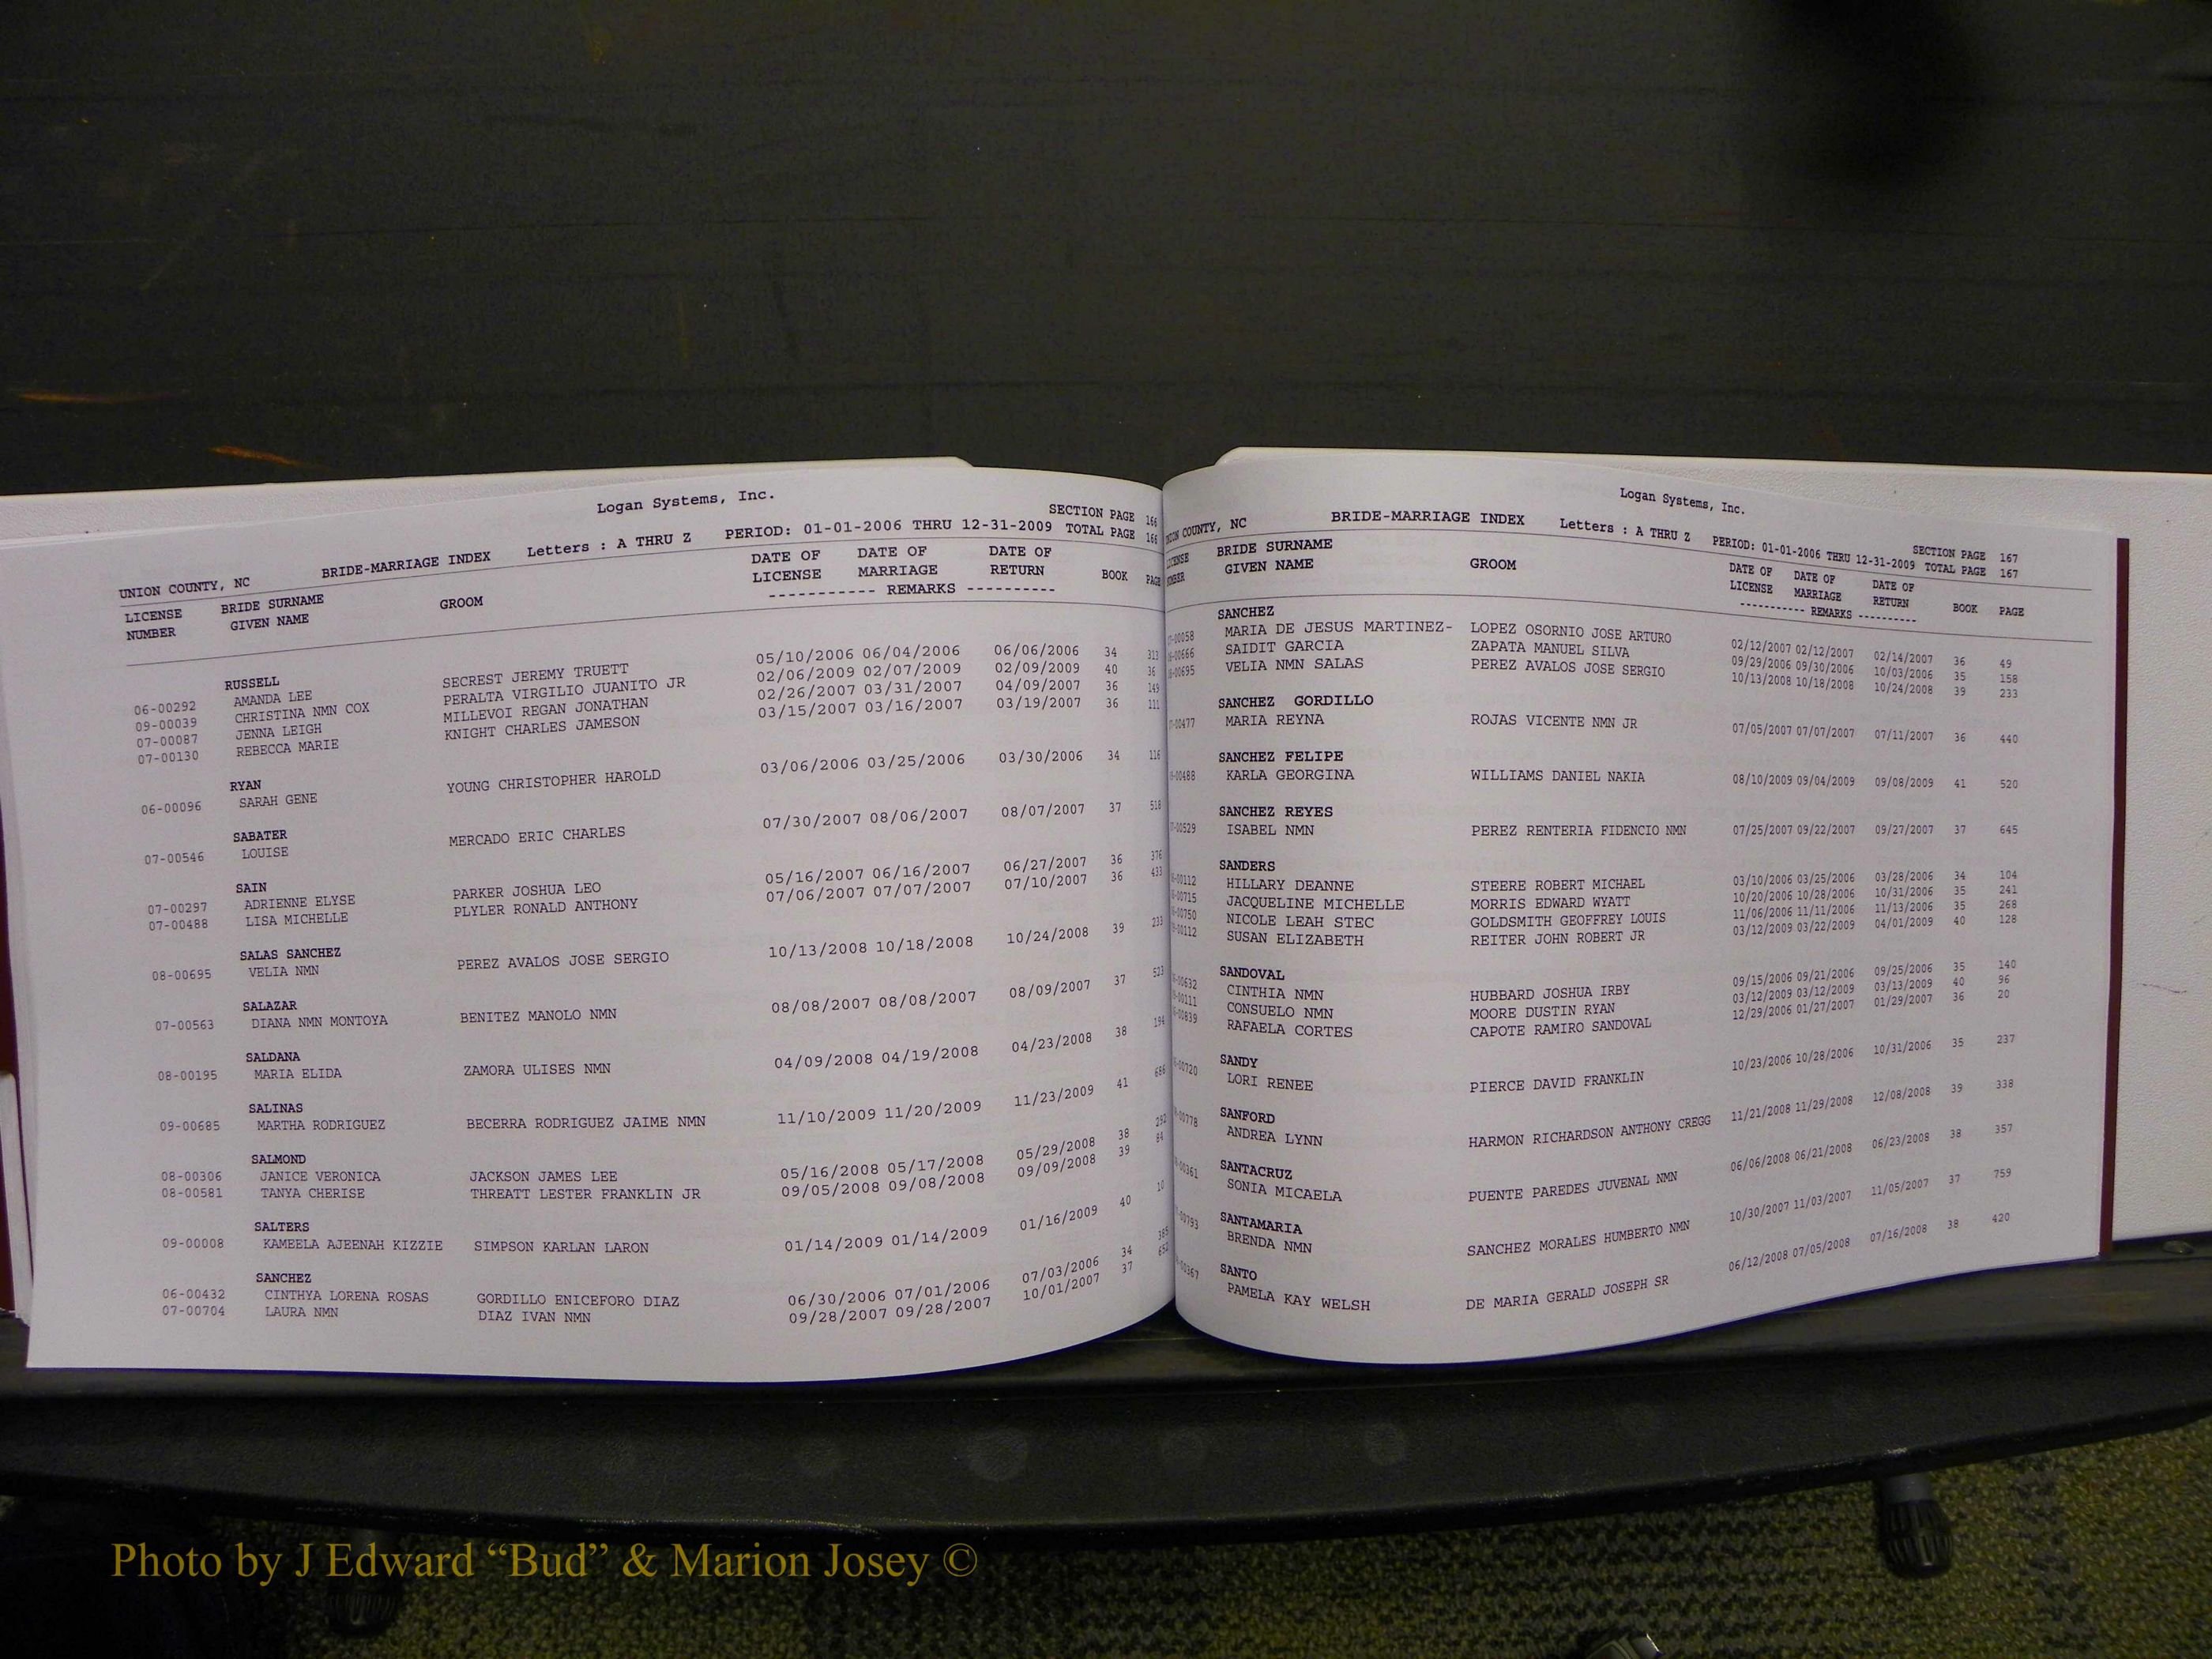 Logan Systems, Inc.
UNION COUNTY, NC BRIDE-MARRIAGE INDEX Letters : A THRU Z PERIOD: 01-01-2006 THRU 12-31-2009 SECTION PAGE 166
TOTAL PAGE 166
LICENSE NUMBER BRIDE SURNAME GIVEN NAME GROOM DATE OF LICENSE DATE OF MARRIAGE DATE OF RETURN BOOK PAGE
----------- REMARKS ----------
RUSSELL
06-00292 AMANDA LEE SECREST JEREMY TRUETT 05/10/2006 06/04/2006 06/06/2006 34 313
09-00039 CHRISTINA NMN COX PERALTA VIRGILIO JUANITO JR 02/06/2009 02/07/2009 02/09/2009 40 36
07-00087 JENNA LEIGH MILLEVOI REGAN JONATHAN 02/26/2007 03/31/2007 04/09/2007 36 149
07-00130 REBECCA MARIE KNIGHT CHARLES JAMESON 03/15/2007 03/16/2007 03/19/2007 36 111
RYAN
06-00096 SARAH GENE YOUNG CHRISTOPHER HAROLD 03/06/2006 03/25/2006 03/30/2006 34 116
SABATER
07-00546 LOUISE MERCADO ERIC CHARLES 07/30/2007 08/06/2007 08/07/2007 37 518
SAIN
07-00297 ADRIENNE ELYSE PARKER JOSHUA LEO 05/16/2007 06/16/2007 06/27/2007 36 376
07-00488 LISA MICHELLE PLYLER RONALD ANTHONY 07/06/2007 07/07/2007 07/10/2007 36 433
SALAS SANCHEZ
08-00695 VELIA NMN PEREZ AVALOS JOSE SERGIO 10/13/2008 10/18/2008 10/24/2008 39 233
SALAZAR
07-00563 DIANA NMN MONTOYA BENITEZ MANOLO NMN 08/08/2007 08/08/2007 08/09/2007 37 523
SALDANA
08-00195 MARIA ELIDA ZAMORA ULISES NMN 04/09/2008 04/19/2008 04/23/2008 38 194
SALINAS
09-00685 MARTHA RODRIGUEZ BECERRA RODRIGUEZ JAIME NMN 11/10/2009 11/20/2009 11/23/2009 41 686
SALMOND
08-00306 JANICE VERONICA JACKSON JAMES LEE 05/16/2008 05/17/2008 05/29/2008 38 282
08-00581 TANYA CHERISE THREATT LESTER FRANKLIN JR 09/05/2008 09/08/2008 09/09/2008 39 84
SALTERS
09-00008 KAMEELA AJEENAH KIZZIE SIMPSON KARLAN LARON 01/14/2009 01/14/2009 01/16/2009 40 10
SANCHEZ
06-00432 CINTHYA LORENA ROSAS GORDILLO ENICEFORO DIAZ 06/30/2006 07/01/2006 07/03/2006 34
07-00704 LAURA NMN DIAZ IVAN NMN 09/28/2007 09/28/2007 10/01/2007 37
Logan Systems, Inc.
COUNTY, NC BRIDE-MARRIAGE INDEX Letters : A THRU Z PERIOD: 01-01-2006 THRU 12-31-2009 SECTION PAGE 167
TOTAL PAGE 167
BRIDE SURNAME GIVEN NAME GROOM DATE OF LICENSE DATE OF MARRIAGE DATE OF RETURN BOOK PAGE
----------- REMARKS ----------
SANCHEZ
-00058 MARIA DE JESUS MARTINEZ- LOPEZ OSORNIO JOSE ARTURO 02/12/2007 02/12/2007 02/14/2007 36 49
-00666 SAIDIT GARCIA ZAPATA MANUEL SILVA 09/29/2006 09/30/2006 10/03/2006 35 158
-00695 VELIA NMN SALAS PEREZ AVALOS JOSE SERGIO 10/13/2008 10/18/2008 10/24/2008 39 233
SANCHEZ GORDILLO
-00477 MARIA REYNA ROJAS VICENTE NMN JR 07/05/2007 07/07/2007 07/11/2007 36 440
SANCHEZ FELIPE
-00488 KARLA GEORGINA WILLIAMS DANIEL NAKIA 08/10/2009 09/04/2009 09/08/2009 41 520
SANCHEZ REYES
-00529 ISABEL NMN PEREZ RENTERIA FIDENCIO NMN 07/25/2007 09/22/2007 09/27/2007 37 645
SANDERS
-00112 HILLARY DEANNE STEERE ROBERT MICHAEL 03/10/2006 03/25/2006 03/28/2006 34 104
-00715 JACQUELINE MICHELLE MORRIS EDWARD WYATT 10/20/2006 10/28/2006 10/31/2006 35 241
-00750 NICOLE LEAH STEC GOLDSMITH GEOFFREY LOUIS 11/06/2006 11/11/2006 11/13/2006 35 268
-00112 SUSAN ELIZABETH REITER JOHN ROBERT JR 03/12/2009 03/22/2009 04/01/2009 40 128
SANDOVAL
-00632 CINTHIA NMN HUBBARD JOSHUA IRBY 09/15/2006 09/21/2006 09/25/2006 35 140
-00111 CONSUELO NMN MOORE DUSTIN RYAN 03/12/2009 03/12/2009 03/13/2009 40 96
-00839 RAFAELA CORTES CAPOTE RAMIRO SANDOVAL 12/29/2006 01/27/2007 01/29/2007 36 20
SANDY
-00720 LORI RENEE PIERCE DAVID FRANKLIN 10/23/2006 10/28/2006 10/31/2006 35 237
SANFORD
-00778 ANDREA LYNN HARMON RICHARDSON ANTHONY CREGG 11/21/2008 11/29/2008 12/08/2008 39 338
SANTACRUZ
-00361 SONIA MICAELA PUENTE PAREDES JUVENAL NMN 06/06/2008 06/21/2008 06/23/2008 38 357
SANTAMARIA
-00793 BRENDA NMN SANCHEZ MORALES HUMBERTO NMN 10/30/2007 11/03/2007 11/05/2007 37 759
SANTO
-00367 PAMELA KAY WELSH DE MARIA GERALD JOSEPH SR 06/12/2008 07/05/2008 07/16/2008 38 420
Photo by J Edward “Bud” & Marion Josey ©